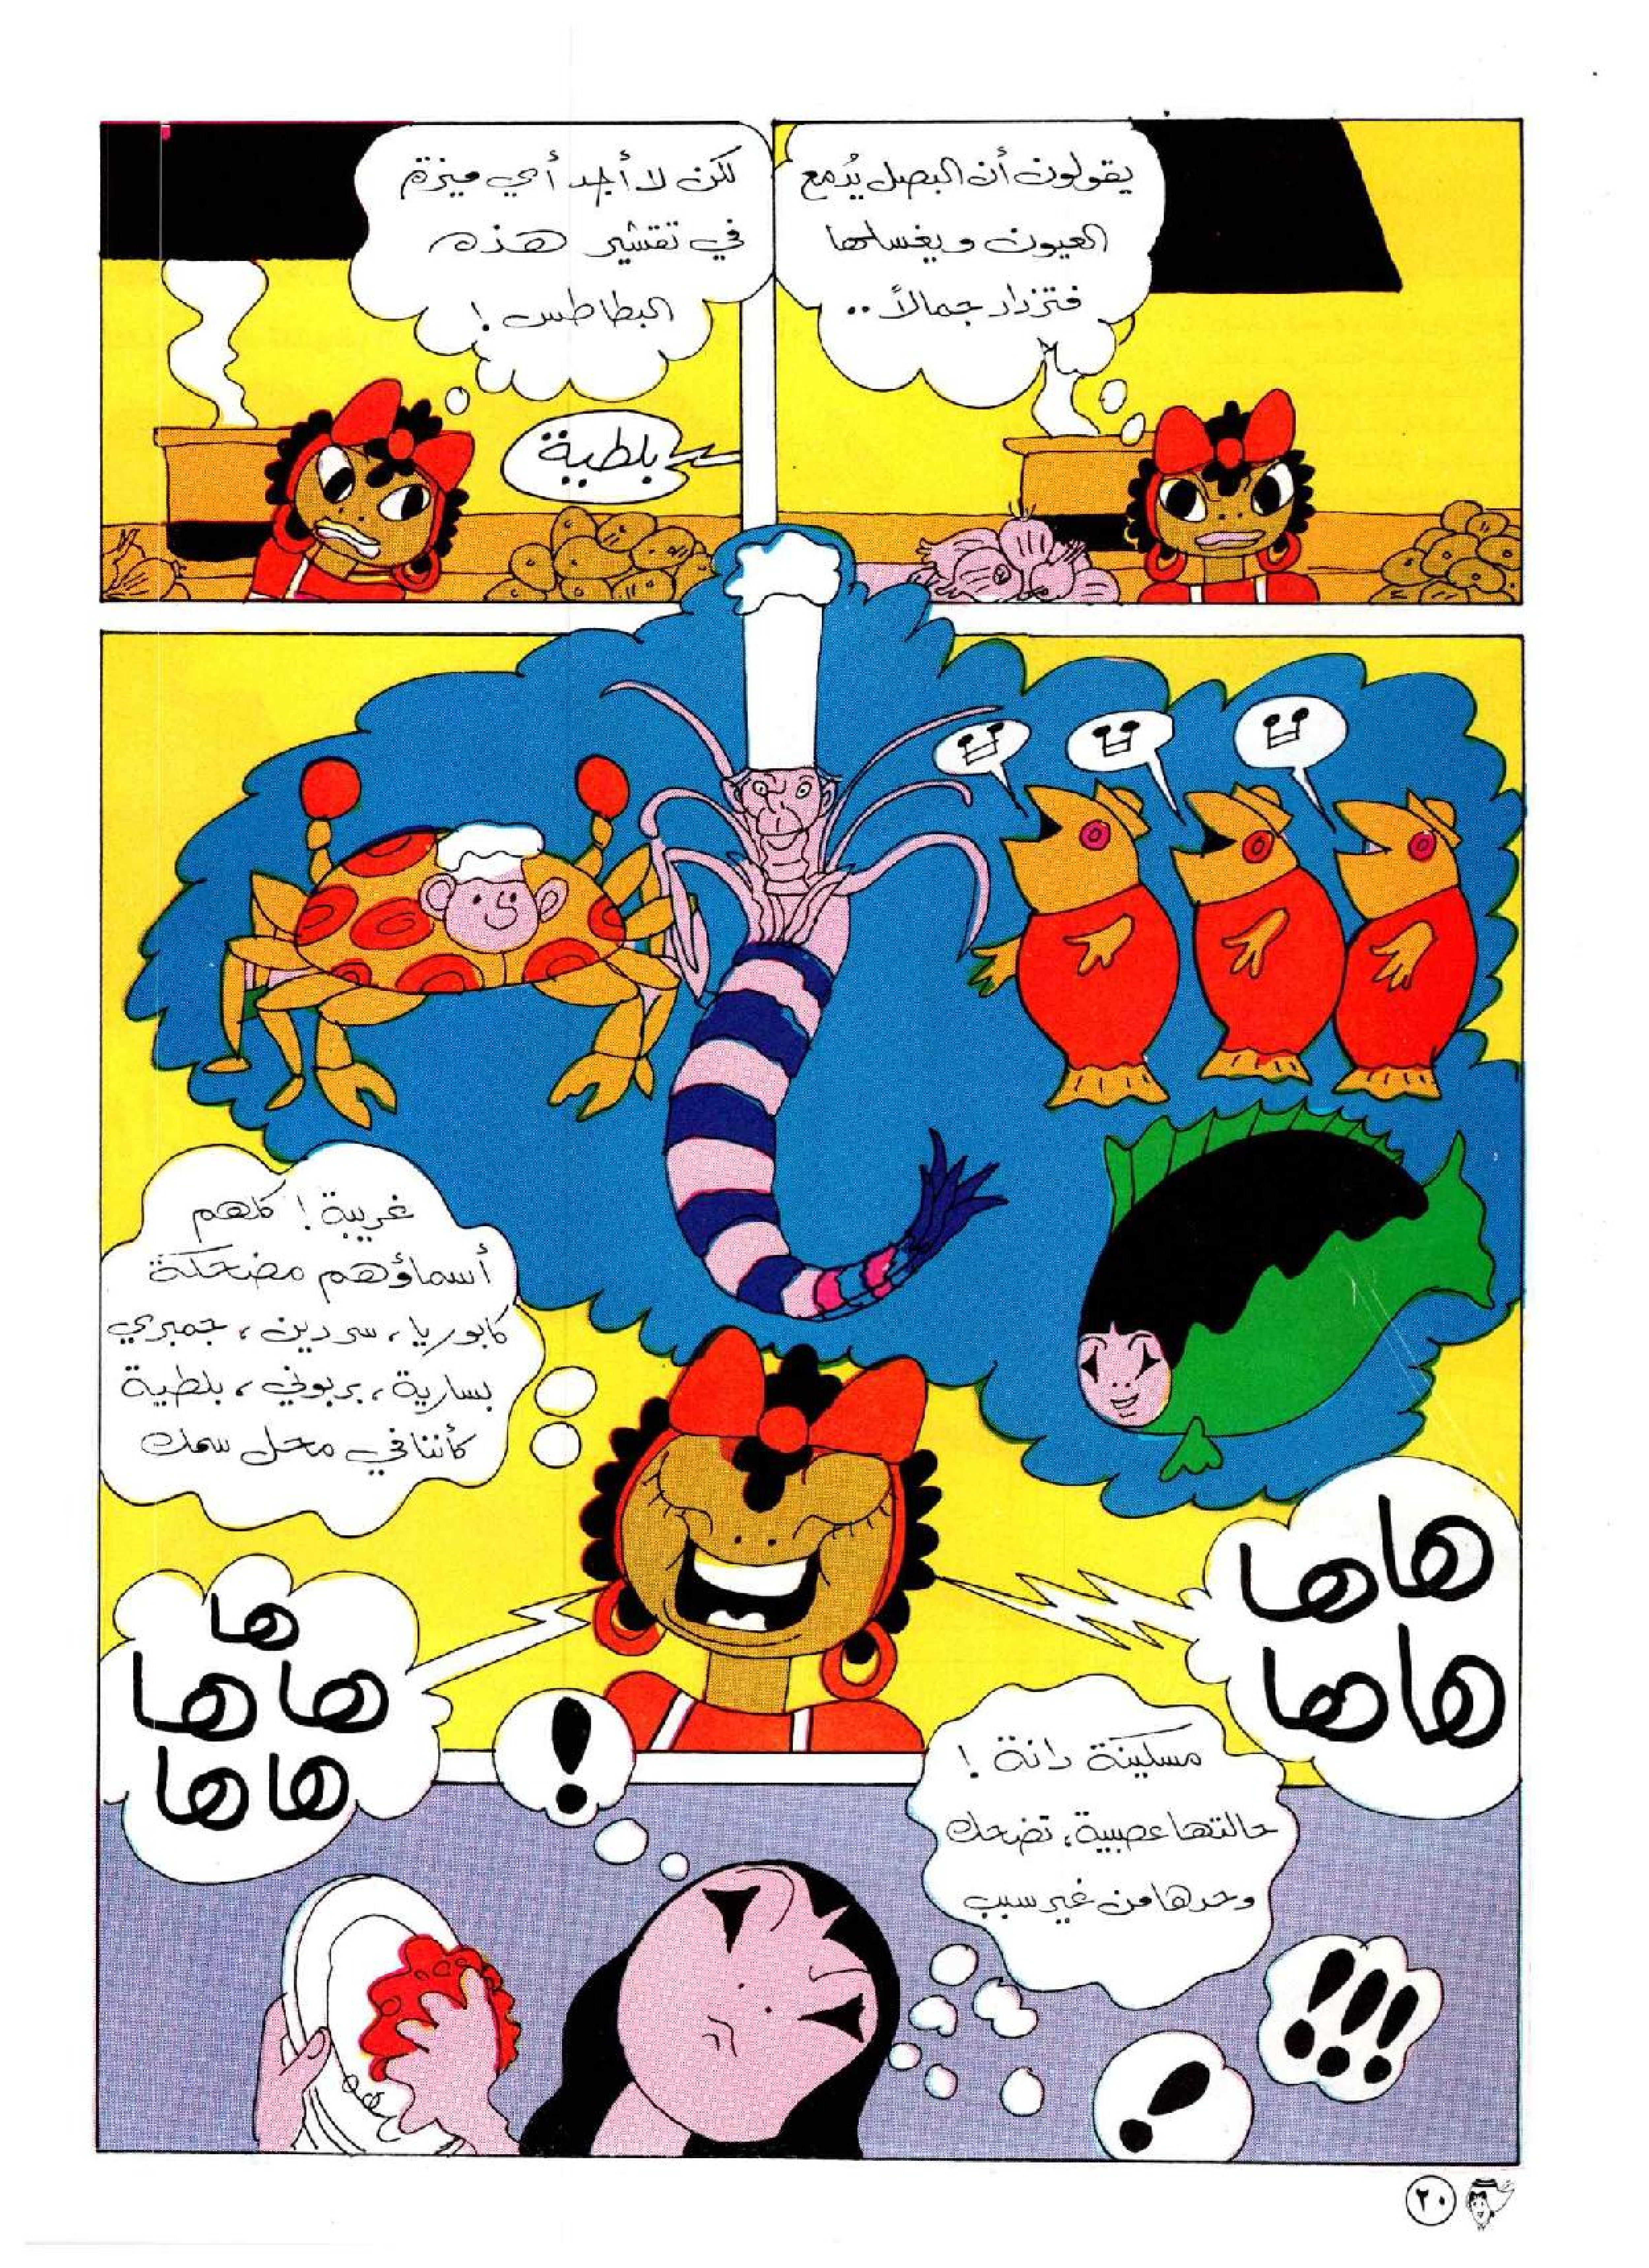 يقولون أن البصل يُدمع
العيون ويغسلها
فتزداد جمالاً..
لكن لا أجد أي ميزة
في تقشير هذه
البطاطس!
بلطية
غريبة! كلهم
أسماؤهم مضحكة
كابوريا، سردين، جمبري
بسارية، بربوني، بلطية
كأننا في محل سمك
هاها
هاها
ها
هاها
هاها
!
مسكينة دانة!
حالتها عصبية، تضحك
وحدها من غير سبب
!!!
!
٢٠